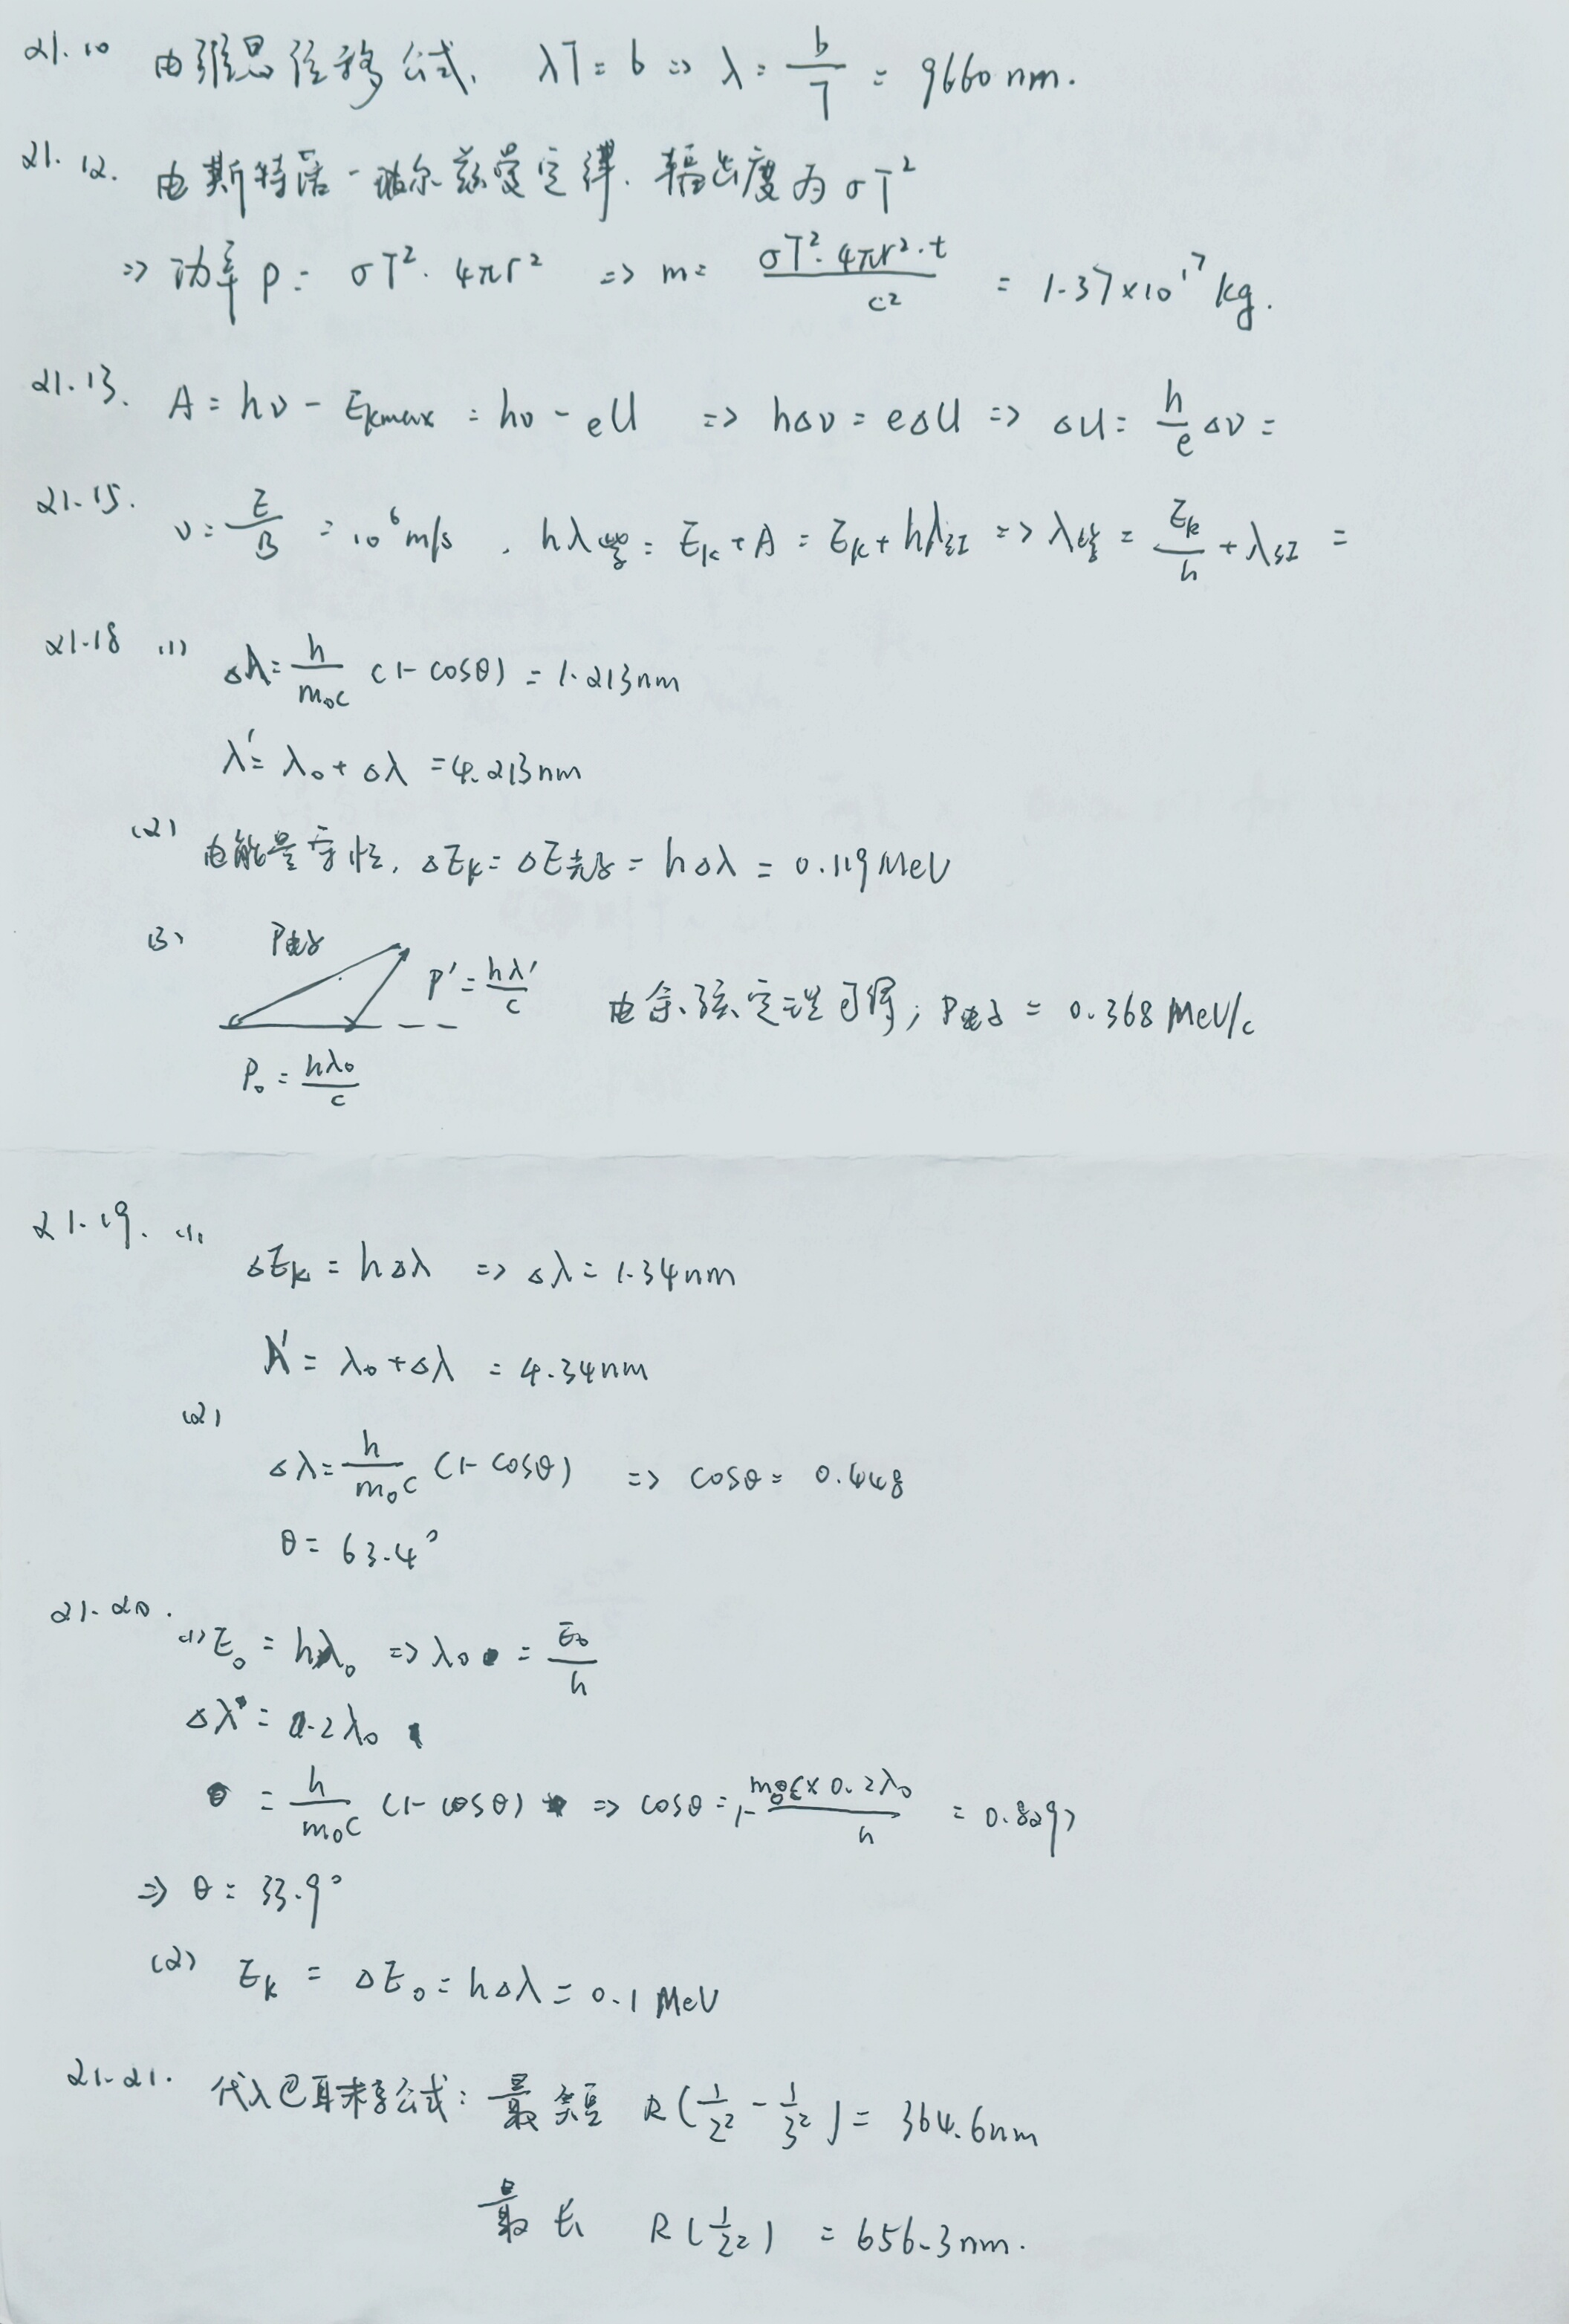 21.10 由维恩位移公式, λT = b => λ = b/T = 9660 nm.
21.12. 由斯特潘-玻尔兹曼定律, 辐出度为 σT²
=> 功率 P = σT² · 4πr² => m = σT² · 4πr² · t / c² = 1.37×10¹⁷ kg.
21.13. A = hν - Ekmax = hν - eU => hΔν = eΔU => ΔU = h/e Δν =
21.15. v = E/B = 10⁶ m/s , hλ紫 = Ek + A = Ek + hλ红 => λ紫 = Ek/h + λ红 =
21.18 (1) Δλ = h/m₀c (1-cosθ) = 1.213nm
λ' = λ₀ + Δλ = 4.213nm
(2) 由能量守恒, ΔEk = ΔE光子 = hΔλ = 0.119 MeV
(3) P电子 P' = hλ'/c 由余弦定理可得, P电子 = 0.368 MeV/c
P₀ = hλ₀/c
21.19. (1) ΔEk = hΔλ => Δλ = 1.34nm
λ' = λ₀ + Δλ = 4.34nm
(2) Δλ = h/m₀c (1-cosθ) => cosθ = 0.448
θ = 63.4°
21.20. (1) E₀ = hλ₀ => λ₀ = E₀/h
Δλ = 0.2λ₀
= h/m₀c (1-cosθ) => cosθ = 1- m₀c×0.2λ₀/h = 0.8297
=> θ = 33.9°
(2) Ek = ΔE₀ = hΔλ = 0.1 MeV
21.21. 代入巴耳末系公式: 最短 R(1/2² - 1/3²) = 364.6nm
最长 R(1/2²) = 656.3nm.